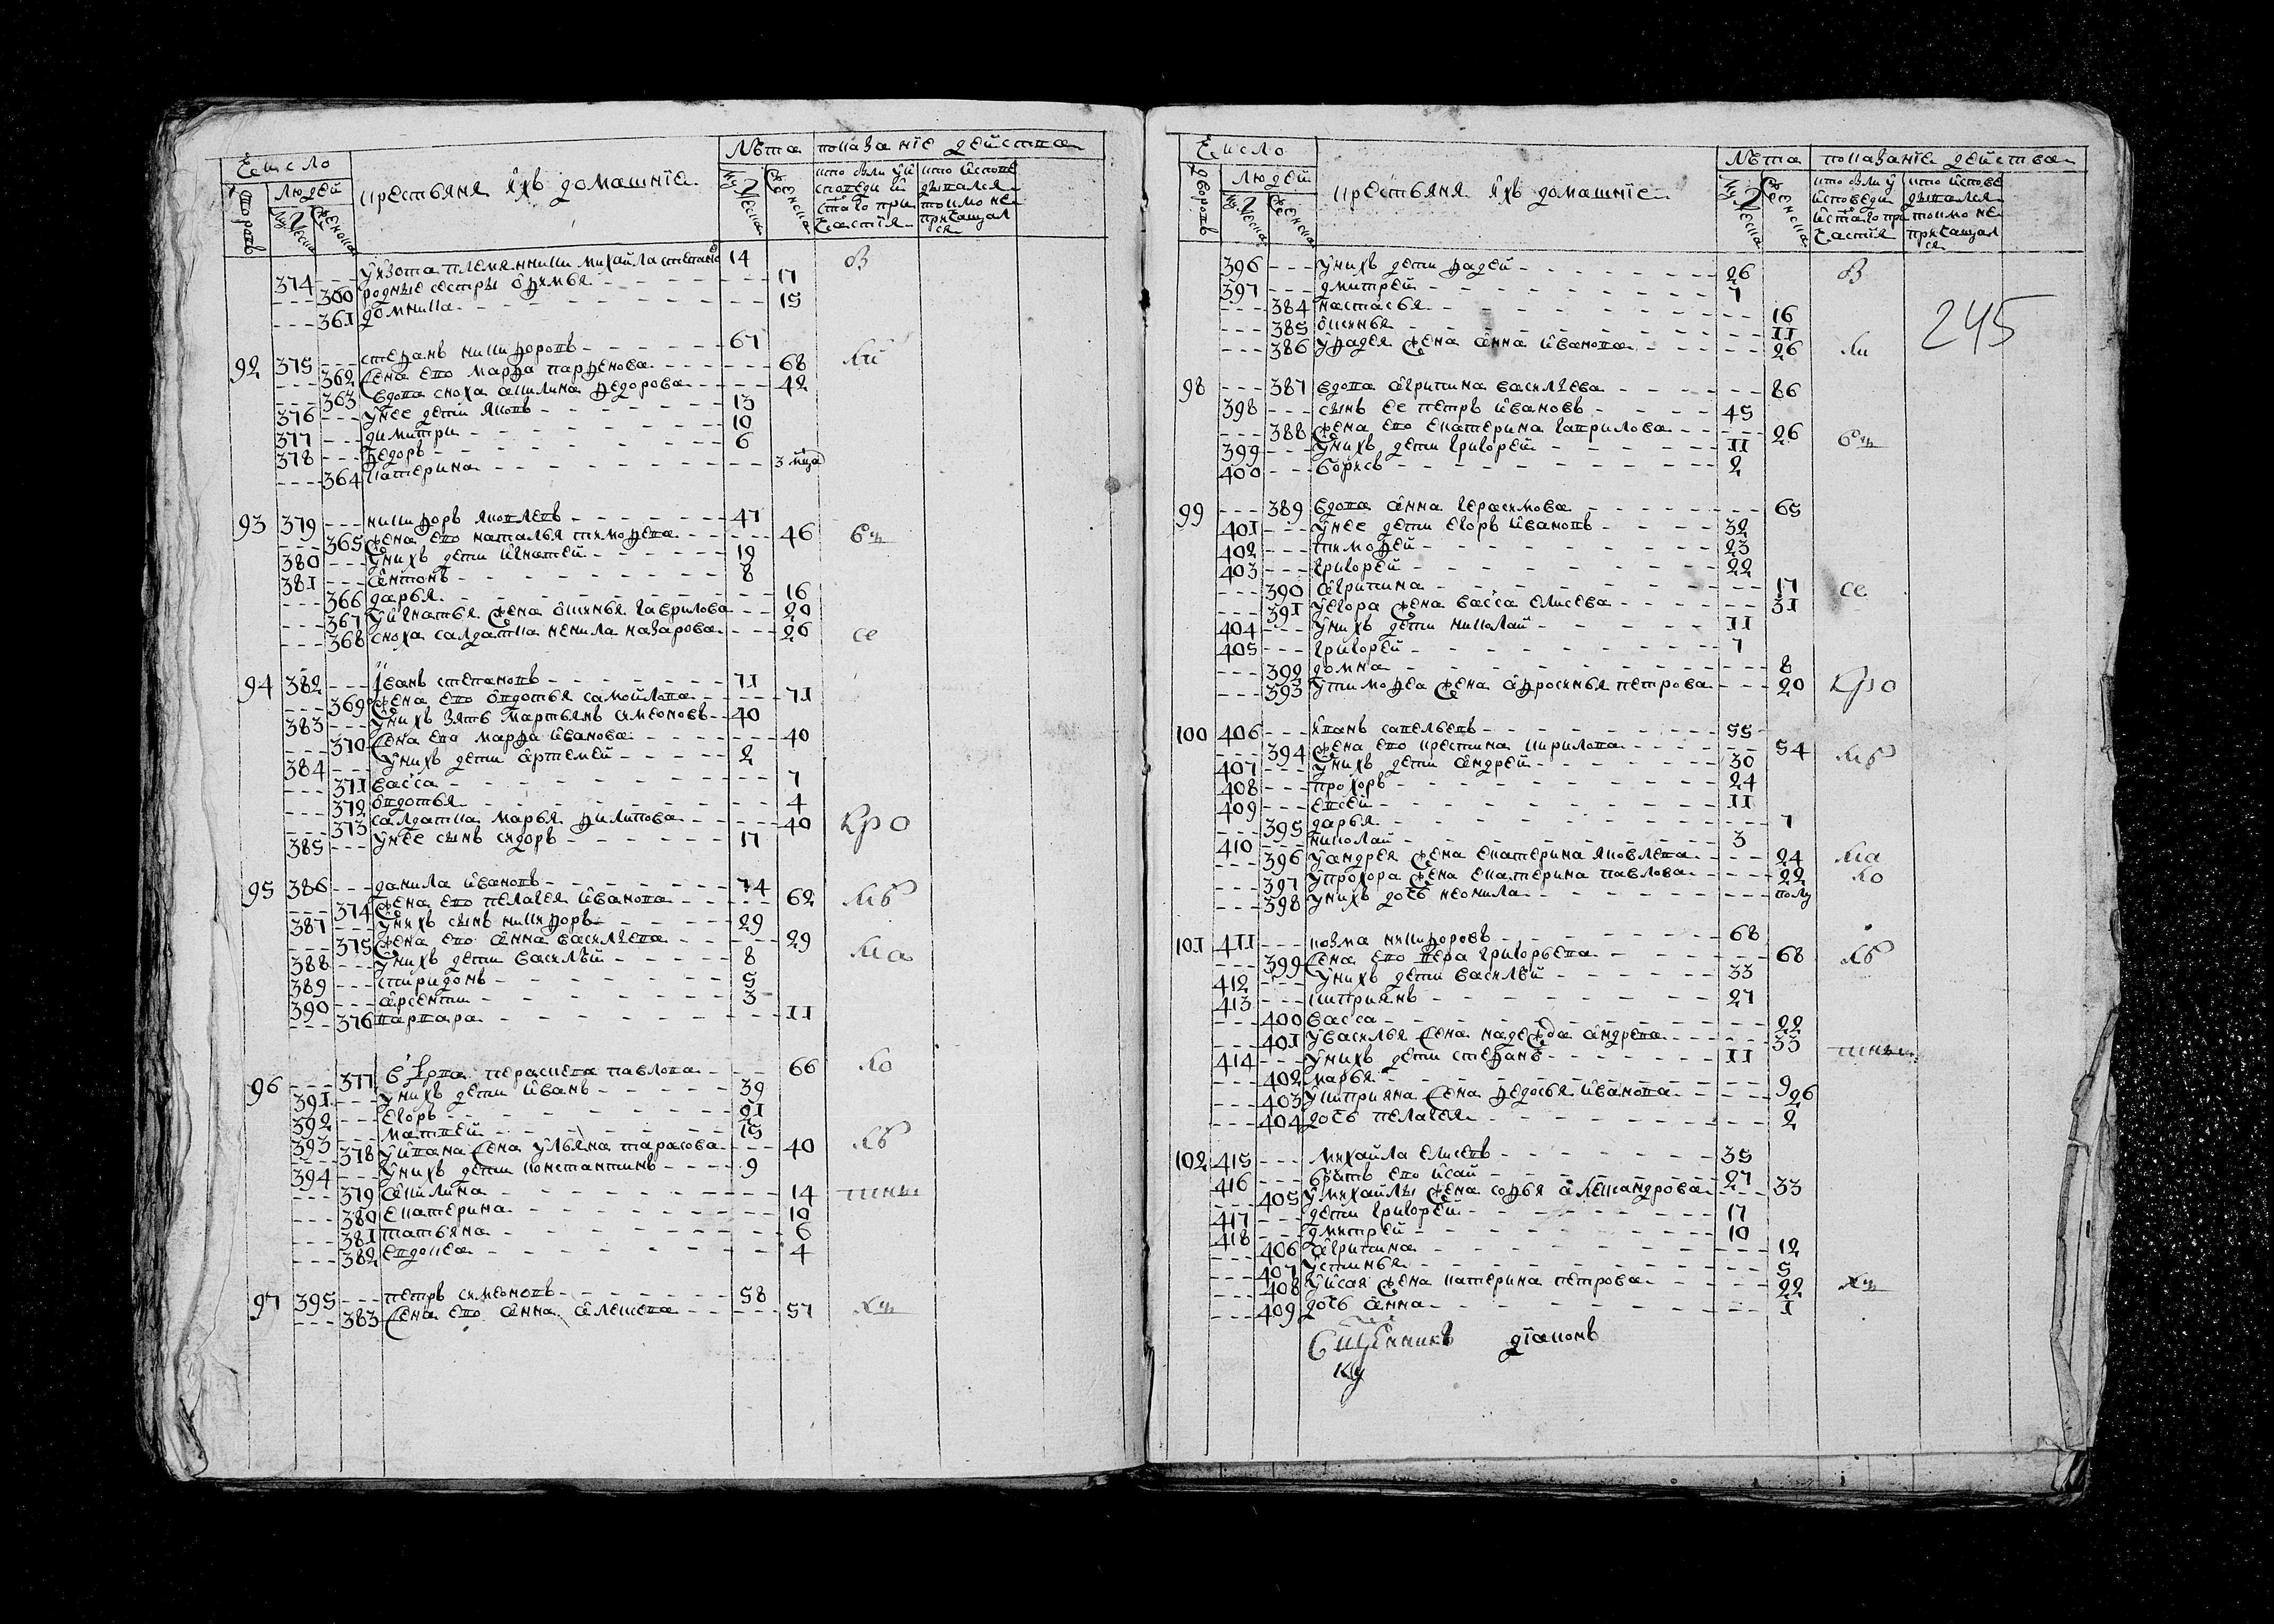 Число
Лѣта показанïе действа
дворовъ
людей
крестьяня ихъ домашнïе
мужеска
женска
кто были у исповеди и стаго причастïя
кто исповедывался токмо не причащался
374 --- у изота племянники михайла степанов 14
--- 360 родные сестры офимья 17
--- 361 домника 15
92 375 --- стефанъ никифоровъ 67
--- 362 жена ево марфа парфенова 68
--- 363 вдова сноха акилина федорова 42
376 --- у нее дети яковъ 13
377 --- димитри 10
378 --- федоръ 6
--- 364 катерина 3 мца
93 379 --- никифоръ яковлевъ 47
--- 365 жена ево наталья тимофева 46
380 --- у нихъ дети игнатей 19
381 --- антонъ 8
--- 366 дарья 16
--- 367 у игнатья жена офимья гаврилова 20
--- 368 сноха салдатка ненила назарова 26
94 382 --- иванъ степановъ 71
--- 369 жена ево овдотья самойлова 71
383 --- у нихъ зять мартьянъ симеоновъ 40
--- 370 жена ево марфа иванова 40
384 --- у нихъ дети артемей 2
--- 371 васса 7
--- 372 овдотья 4
--- 373 салдатка марья филипова 40
385 --- у нее сынъ сидоръ 17
95 386 --- данила ивановъ 74
--- 374 жена ево пелагея иванова 62
387 --- у нихъ сынъ никифоръ 29
--- 375 жена ево анна василева 29
388 --- у нихъ дети василѣй 8
389 --- спиридонъ 5
390 --- арсентий 3
--- 376 варвара 11
96 --- 377 вдова пераскева павлова 66
391 --- у нихъ дети иванъ 39
392 --- егоръ 21
393 --- матвей 15
--- 378 у ивана жена ульяна тарасова 40
394 --- у нихъ дети константинъ 9
--- 379 акилина 14
--- 380 екатерина 10
--- 381 татьяна 6
--- 382 евдокея 4
97 395 --- петръ симеоновъ 58
--- 383 жена ево анна алексева 57
Число
Лѣта показанïе действа
дворовъ
людей
крестьяня ихъ домашнïе
мужеска
женска
кто были у исповеди и стаго причастïя
кто исповедывался токмо не причащался
245
396 --- у нихъ дети фадей 26
397 --- дмитрей 7
--- 384 настасья 16
--- 385 оксинья 11
--- 386 у фадея жена анна иванова 26
98 --- 387 вдова агрипина василева 86
398 --- сынъ ее петръ ивановъ 45
--- 388 жена ево екатерина гаврилова 26
399 --- у нихъ дети григорей 11
400 --- борисъ 2
99 --- 389 вдова анна герасимова 65
401 --- у нее дети егоръ ивановъ 32
402 --- тимофей 23
403 --- григорей 22
--- 390 агрипина 17
--- 391 у егора жена васса елисева 31
404 --- у нихъ дети николай 11
405 --- григорей 7
--- 392 домна 8
--- 393 у тимофея жена афросинья петрова 20
100 406 --- иванъ савельевъ 55
--- 394 жена ево крестина кирилова 54
407 --- у нихъ дети андрей 30
408 --- прохоръ 24
409 --- евсей 11
--- 395 дарья 7
410 --- николай 3
--- 396 у андрея жена екатерина яковлева 24
--- 397 у прохора жена екатерина павлова 22
--- 398 у нихъ дочь неонила полу
101 411 --- козма никифоровъ 68
--- 399 жена ево вера григорьева 68
412 --- у нихъ дети василѣй 33
413 --- киприянъ 27
--- 400 васса 22
--- 401 у василья жена надежда андрева 33
414 --- у нихъ дети стефанъ 11
--- 402 марья 9
--- 403 у киприяна жена федосья иванова 26
--- 404 дочь пелагея 2
102 415 --- михайла елисевъ 35
416 --- братъ ево исай 27
--- 405 у михайлы жена софья александрова 33
417 --- дети григорей 17
418 --- дмитрей 10
--- 406 агрипина 12
--- 407 устинья 5
--- 408 у исая жена катерина петрова 22
--- 409 дочь анна 1
дïаконъ